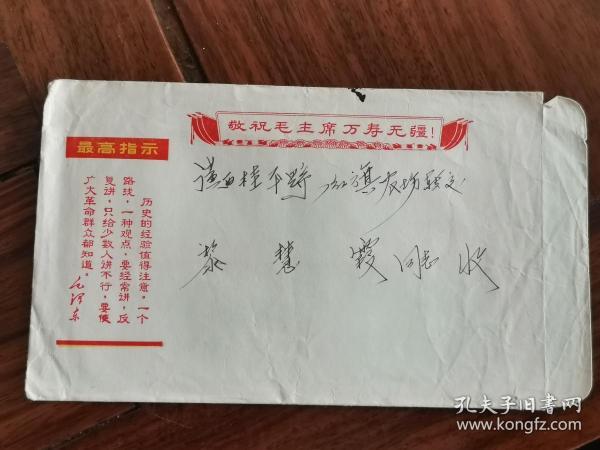 敬祝毛主席万寿无疆!
最高指示
历史的经验值得注意。一个
路线,一种观点,要经常讲,反
复讲。只给少数人讲不行,要使
广大革命群众都知道。
毛泽东
桂平 红旗农场
黎慧霞同志 收
孔夫子旧书网
www.kongfz.com